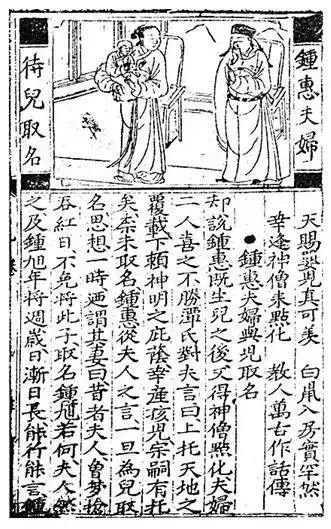 鍾惠夫婦
待兒取名
天賜嬰兒真可美 白鼠入房實罕然
幸逢神僧來點化 教人萬古作話傳
鍾惠夫婦與兒取名
却說鍾惠既生兒之後又得神僧點化夫婦
二人喜之不勝譚氏對夫言曰上托天地之
覆載下賴神明之庇蔭幸產孩兒宗嗣有托
矣奈未取名鍾惠從夫人之言一旦為兒取
名思想一時廼謂其妻曰昔者夫人曾夢搶
吞紅日不免將此子取名鍾馗若何夫人然
之及鍾旭年將週歲日漸日長能行能言鍾